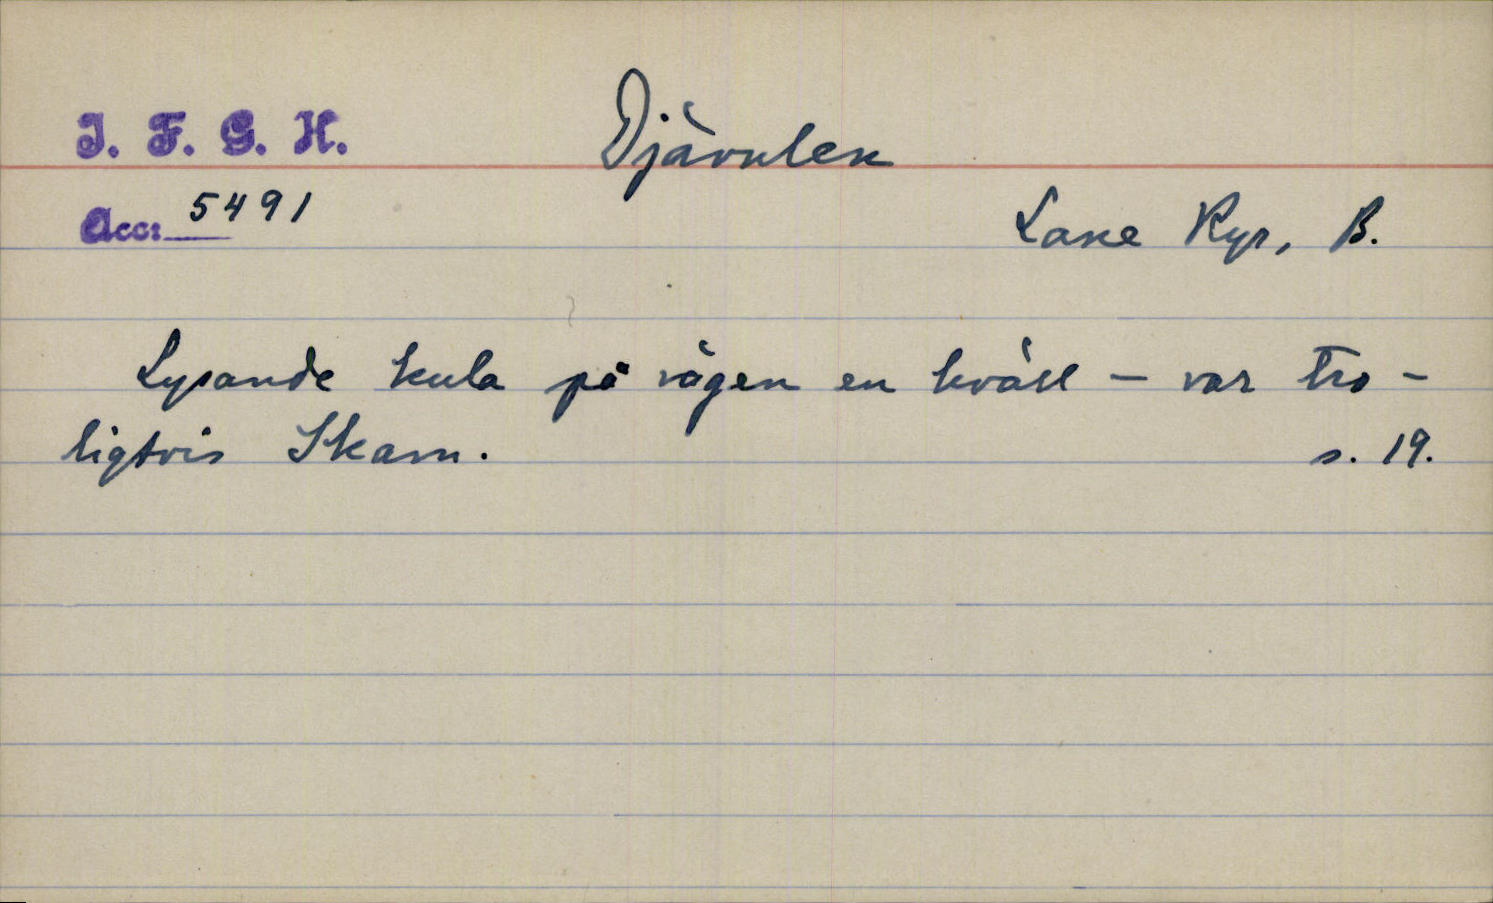 I. F. G. H.
Djävulen
Acc: 5491
Lane Ryr, B.
Lysande kula på vägen en kväll - var tro-
ligtvis Skam.
s. 19.